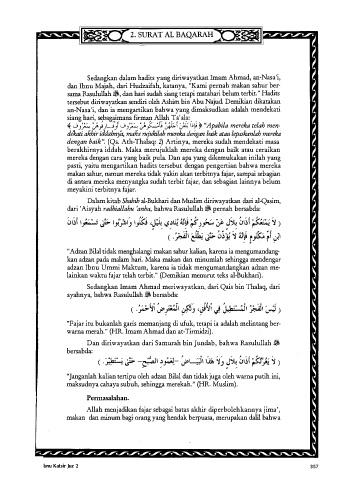 2. SURAT AL BAQARAH
Sedangkan dalam hadits yang diriwayatkan Imam Ahmad, an-Nasa'i,
dan Ibnu Majah, dari Hudzaifah, katanya, "Kami pernah makan sahur ber-
sama Rasulullah ﷺ, dan hari sudah siang tetapi matahari belum terbit." Hadits
tersebut diriwayatkan sendiri oleh Ashim bin Abu Najud. Demikian dikatakan
an-Nasa'i, dan ia mengartikan bahwa yang dimaksudkan adalah mendekati
siang hari, sebagaimana firman Allah Ta'ala:
﴿ فَإِذَا بَلَغْنَ أَجَلَهُنَّ فَأَمْسِكُوهُنَّ بِمَعْرُوفٍ أَوْ فَارِقُوهُنَّ بِمَعْرُوفٍ ﴾ "Apabila mereka telah men-
dekati akhir iddahnya, maka rujukilah mereka dengan baik atau lepaskanlah mereka
dengan baik". (Qs. Ath-Thalaq: 2) Artinya, mereka sudah mendekati masa
berakhirnya iddah. Maka merujuklah mereka dengan baik atau ceraikan
mereka dengan cara yang baik pula. Dan apa yang dikemukakan inilah yang
pasti, yaitu mengartikan hadits tersebut dengan pengertian bahwa mereka
makan sahur, namun mereka tidak yakin akan terbitnya fajar, sampai sebagian
di antara mereka menyangka sudah terbit fajar, dan sebagian lainnya belum
meyakini terbitnya fajar.
Dalam kitab Shahih al-Bukhari dan Muslim diriwayatkan dari al-Qasim,
dari 'Aisyah radhiallahu 'anha, bahwa Rasulullah ﷺ pernah bersabda:
( لَا يَمْنَعُكُمْ أَذَانُ بِلَالٍ عَنْ سَحُورِكُمْ فَإِنَّهُ يُنَادِي بِلَيْلٍ، فَكُلُوا وَاشْرَبُوا حَتَّى تَسْمَعُوا أَذَانَ
ابْنِ أُمِّ مَكْتُومٍ فَإِنَّهُ لَا يُؤَذِّنُ حَتَّى يَطْلُعَ الْفَجْرُ. )
"Adzan Bilal tidak menghalangi makan sahur kalian, karena ia mengumandang-
kan adzan pada malam hari. Maka makan dan minumlah sehingga mendengar
adzan Ibnu Ummi Maktum, karena ia tidak mengumandangkan adzan me-
lainkan waktu fajar telah terbit." (Demikian menurut teks al-Bukhari).
Sedangkan Imam Ahmad meriwayatkan, dari Qais bin Thalaq, dari
ayahnya, bahwa Rasulullah ﷺ bersabda:
( لَيْسَ الْفَجْرُ الْمُسْتَطِيلُ فِي الْأُفُقِ، وَلَكِنِ الْمُعْتَرِضُ الْأَحْمَرُ. )
"Fajar itu bukanlah garis memanjang di ufuk, tetapi ia adalah melintang ber-
warna merah." (HR. Imam Ahmad dan at-Tirmidzi).
Dan diriwayatkan dari Samurah bin Jundab, bahwa Rasulullah ﷺ
bersabda:
( لَا يَغُرَّنَّكُمْ أَذَانُ بِلَالٍ وَلَا هَذَا الْبَيَاضُ – لِعَمُودِ الصُّبْحِ – حَتَّى يَسْتَطِيرَ. )
"Janganlah kalian tertipu oleh adzan Bilal dan tidak juga oleh warna putih ini,
maksudnya cahaya subuh, sehingga merekah." (HR. Muslim).
Permasalahan.
Allah menjadikan fajar sebagai batas akhir diperbolehkannya jima',
makan dan minum bagi orang yang hendak berpuasa, merupakan dalil bahwa
Ibnu Katsir Juz 2
357